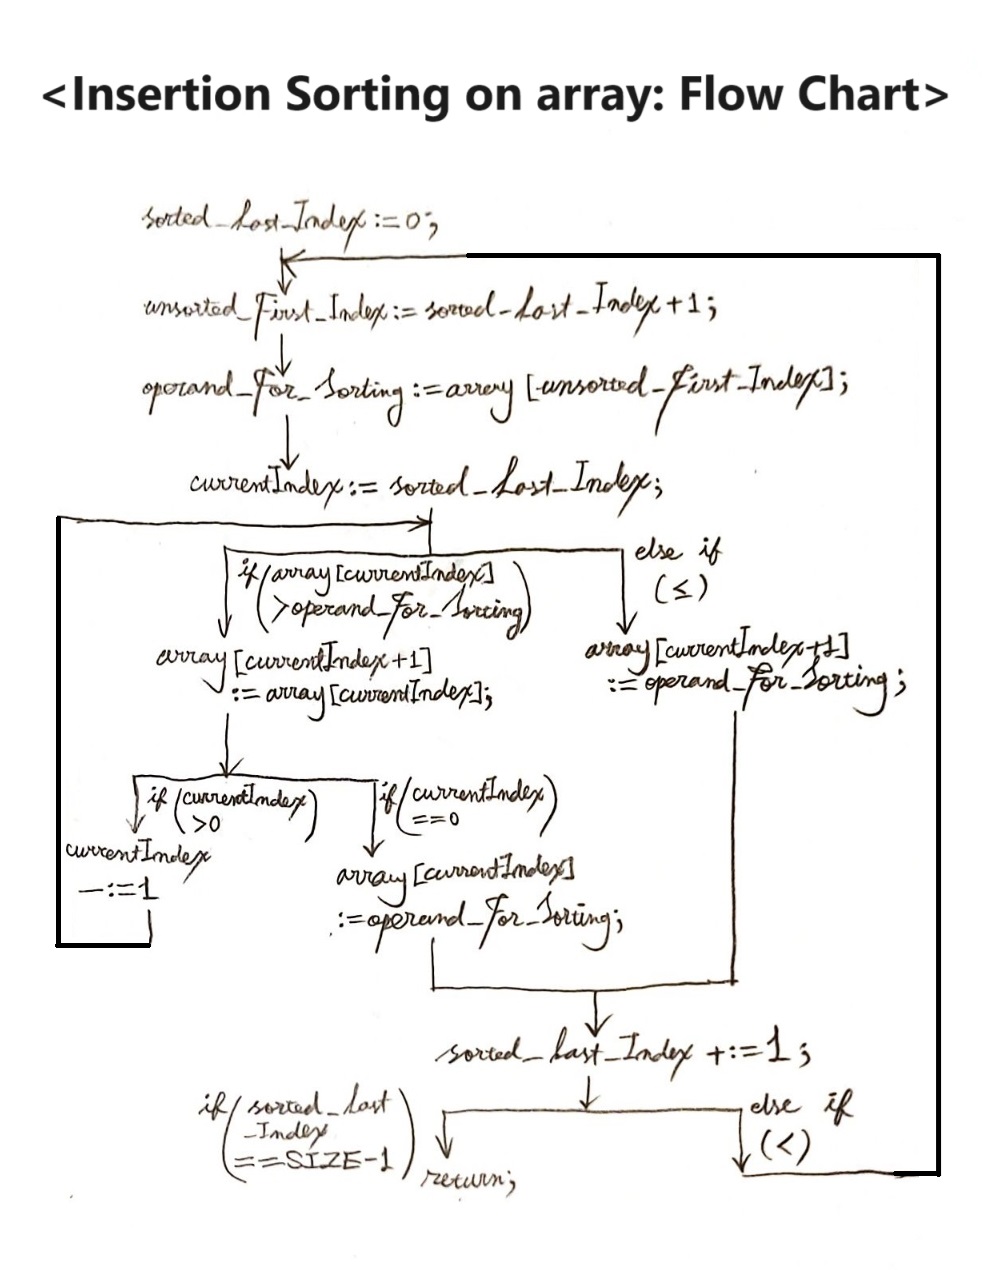 <Insertion Sorting on array: Flow Chart>
sorted_Last_Index:=0;
unsorted_First_Index:= sorted_Last_Index+1;
operand_For_Sorting:=array[unsorted_First_Index];
currentIndex:= sorted_Last_Index;
if(array[currentIndex]
>operand_For_Sorting)
else if
(≤)
array[currentIndex+1]
:=array[currentIndex];
array[currentIndex+1]
:=operand_For_Sorting;
if(currentIndex
>0)
if(currentIndex
==0)
currentIndex
-:=1
array[currentIndex]
:=operand_For_Sorting;
sorted_Last_Index +:=1;
if(sorted_Last
_Index
==SIZE-1)
return;
else if
(<)